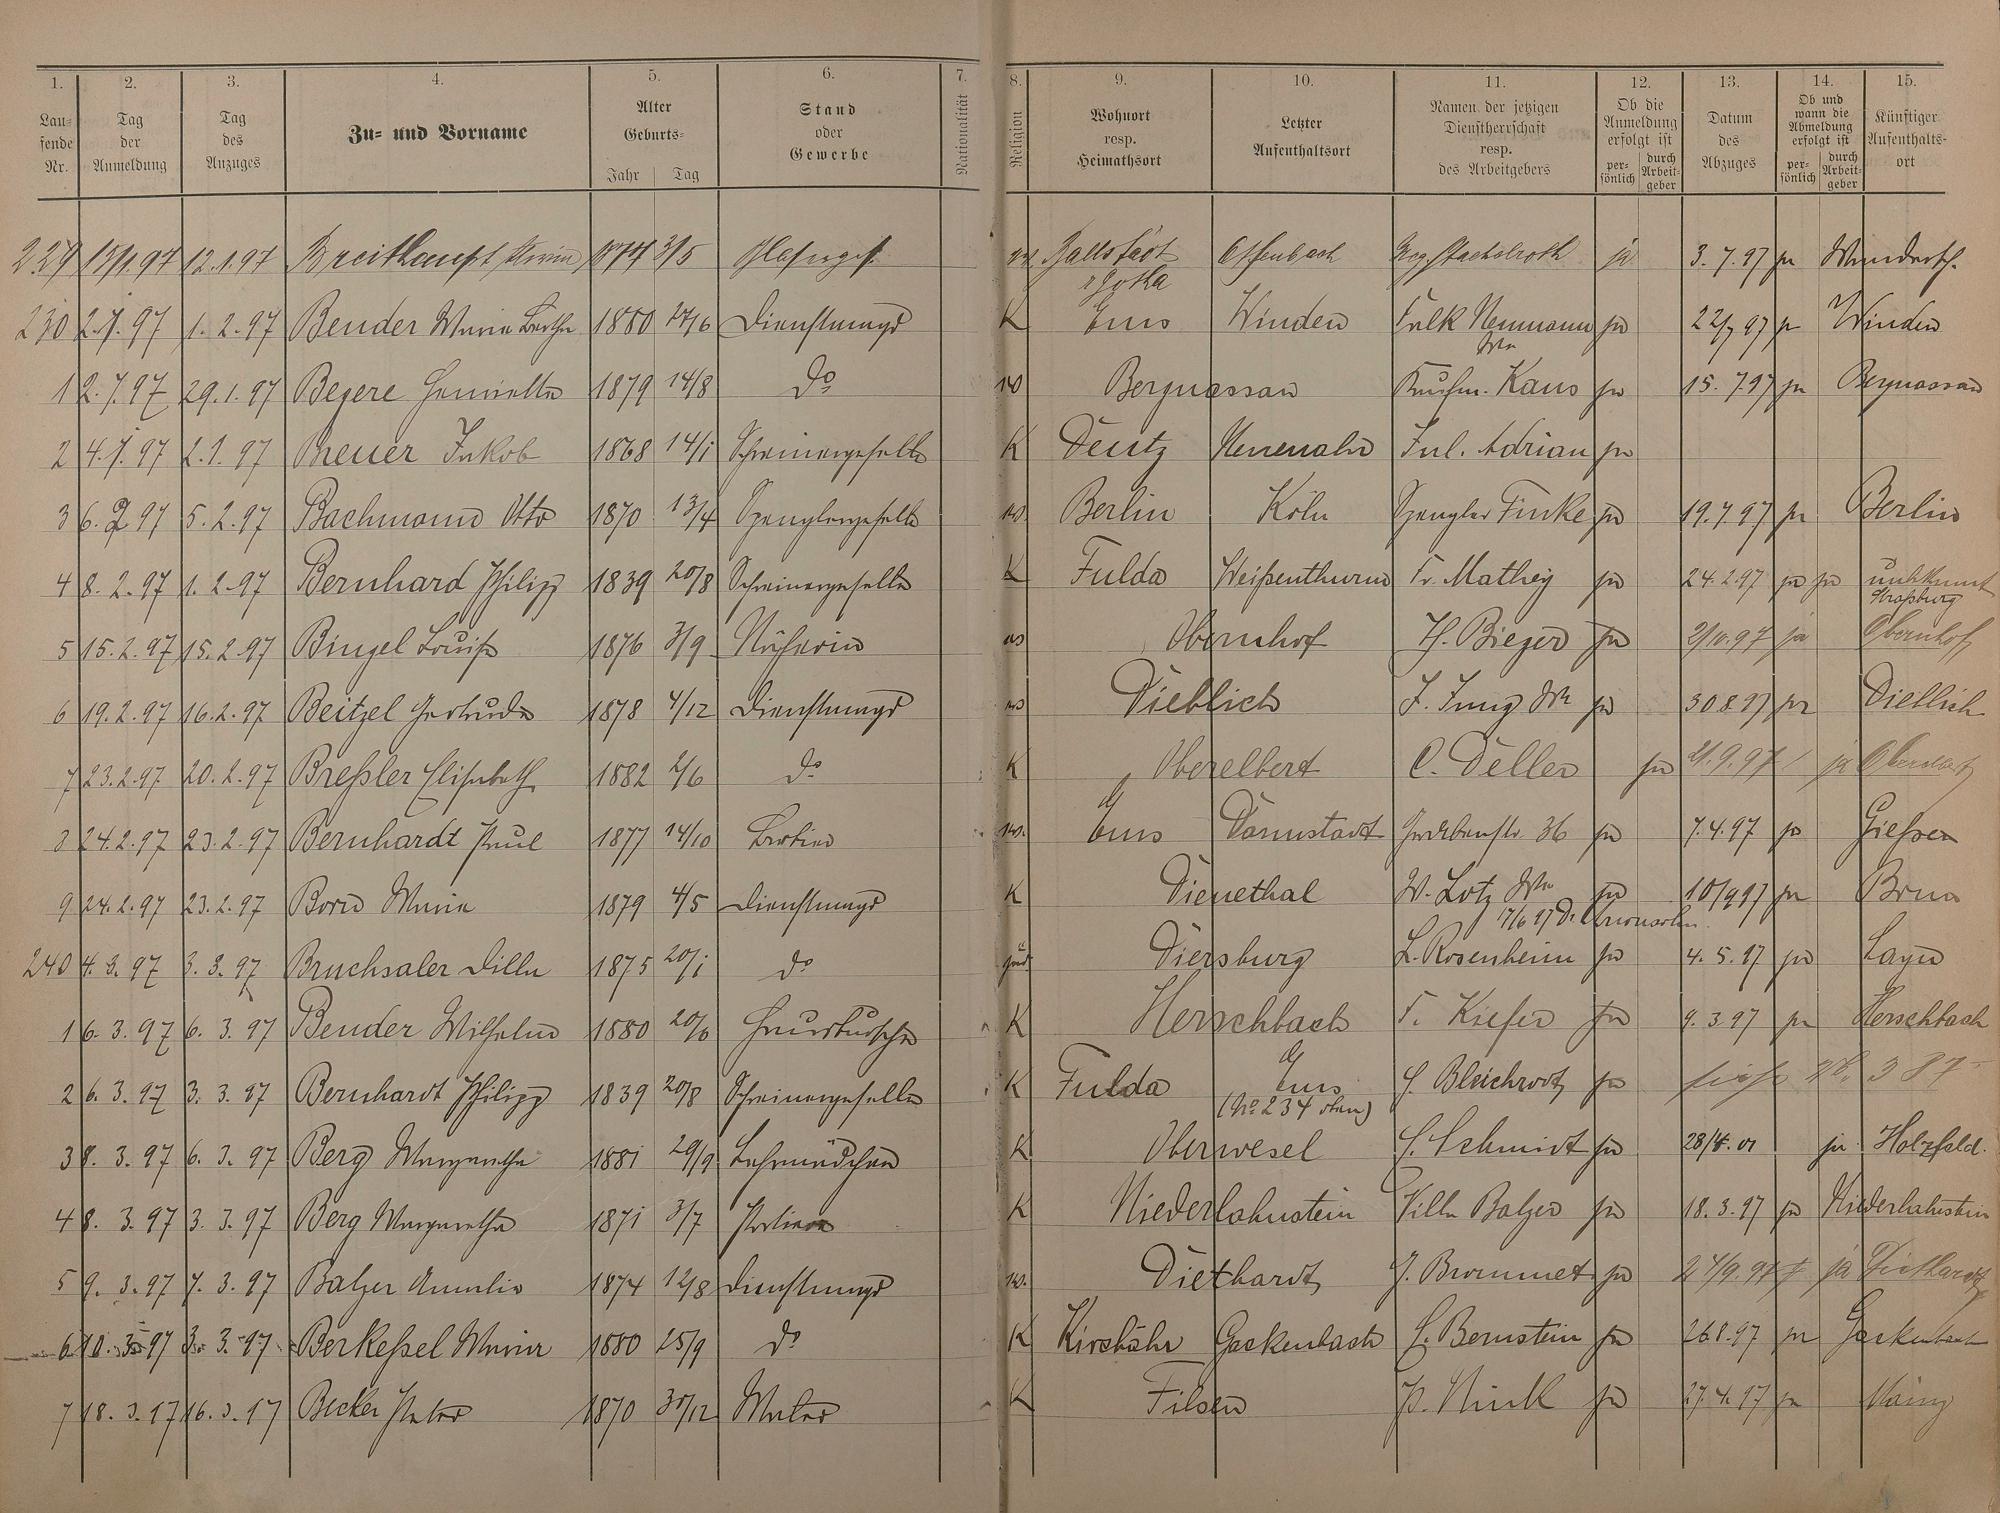 1. 2. 3. 4. 5. 6. 7. 8. 9. 10. 11. 12. 13. 14. 15.
Lau=
fende
Nr.
Tag
der
Anmeldung
Tag
des
Anzuges
Zu= und Vorname
Alter
Geburts=
Jahr Tag
Stand
oder
Gewerbe
Nationalität
Religion
Wohnort
resp.
Heimathsort
Letzter
Aufenthaltsort
Namen der jetzigen
Dienstherrschaft
resp.
des Arbeitgebers
Ob die
Anmeldung
erfolgt ist
per-
sönlich
durch
Arbeit-
geber
Datum
des
Abzuges
Ob und
wann die
Abmeldung
erfolgt ist
per-
sönlich
durch
Arbeit-
geber
Künftiger
Aufenthalts-
ort
229 12.1.97 Breitkaupt 1874 3/5 Ballstädt Offenbach ja 3.7.97
Gotha
230 1.2.97 Bender Maria Bertha 1880 27/6 Dienstmagd K Ems Winden Falk Neumann ja 22/7 97 ja Winden
1 29.1.97 Beyere Henriette 1879 14/8 do Bergnassau Kaufm. Kaus ja 15.7.97 ja Bergnassau
2 Breuer Jakob 1868 14/1 Schreinergeselle K Deutz Neuenahr Jul. Adrian ja
3 6.2 97 5.2.97 Bachmann Otto 1870 13/4 Spenglergeselle Berlin Köln Spengler Finke ja 19.7.97 ja Berlin
4 8.2.97 1.2.97 Bernhard Philipp 1839 20/8 Schreinergeselle K Fulda Weißenthurm Fr. Mathey ja 24.2.97 ja ja unbekannt
Straßburg
5 15.2.97 15.2.97 Bingel Louise 1876 3/9 Näherin Obernhof H. Bieger ja 2/10.97 ja Obernhof
6 19.2.97 16.2.97 Beitzel Gertrude 1878 4/12 Dienstmagd Dieblich J. Jung Ww ja 30.8.97 ja Dieblich
7 23.2.97 20.2.97 Breßler Elisabeth 1882 2/6 do K Oberelbert C. Deller ja 21.9.97 ja Oberelbert
8 24.2.97 23.2.97 Bernhardt Paul 1877 14/10 Ems Darmstadt 36 ja 7.4.97 ja Gießen
9 24.2.97 23.2.97 Born Maria 1879 4/5 Dienstmagd K Dienethal W. Lotz Ww ja 10/9 97 ja
17/6 97 Dr.
240 4.3.97 3.3.97 Bruchsaler Dilla 1875 20/1 do Diersburg L. Rosenheim ja 4.5.97 ja
1 6.3.97 6.3.97 Bender Wilhelm 1880 Hausbursche K Herschbach F. Kiefer ja 9.3.97 ja Herschbach
2 6.3.97 3.3.97 Bernhardt Philipp 1839 20/8 Schreinergeselle K Fulda Ems ja siehe
(No 234 oben)
3 8.3.97 6.3.97 Berg Margaretha 1881 29/9 Lehrmädchen K Oberwesel S. Schmidt ja ja Holzfeld.
4 8.3.97 3.3.97 Berg Margaretha 1871 3/7 K Niederlahnstein Villa Balzer ja 18.3.97 ja Niederlahnstein
5 9.3.97 7.3.97 Balzer Amalie 1874 12/8 Dienstmagd Diethardt J. Brommet ja 24/9.97 ja Diethardt
6 10.3.97 3.3.97 Berkeßel Maria 1880 25/9 do K Kirchähr Gackenbach S. Bernstein ja 26.8.97 ja Gackenbach
7 18.3.97 16.3.97 Becker Peter 1870 30/12 Maler K Filsen P. Nink ja 27.4.97 ja Mainz